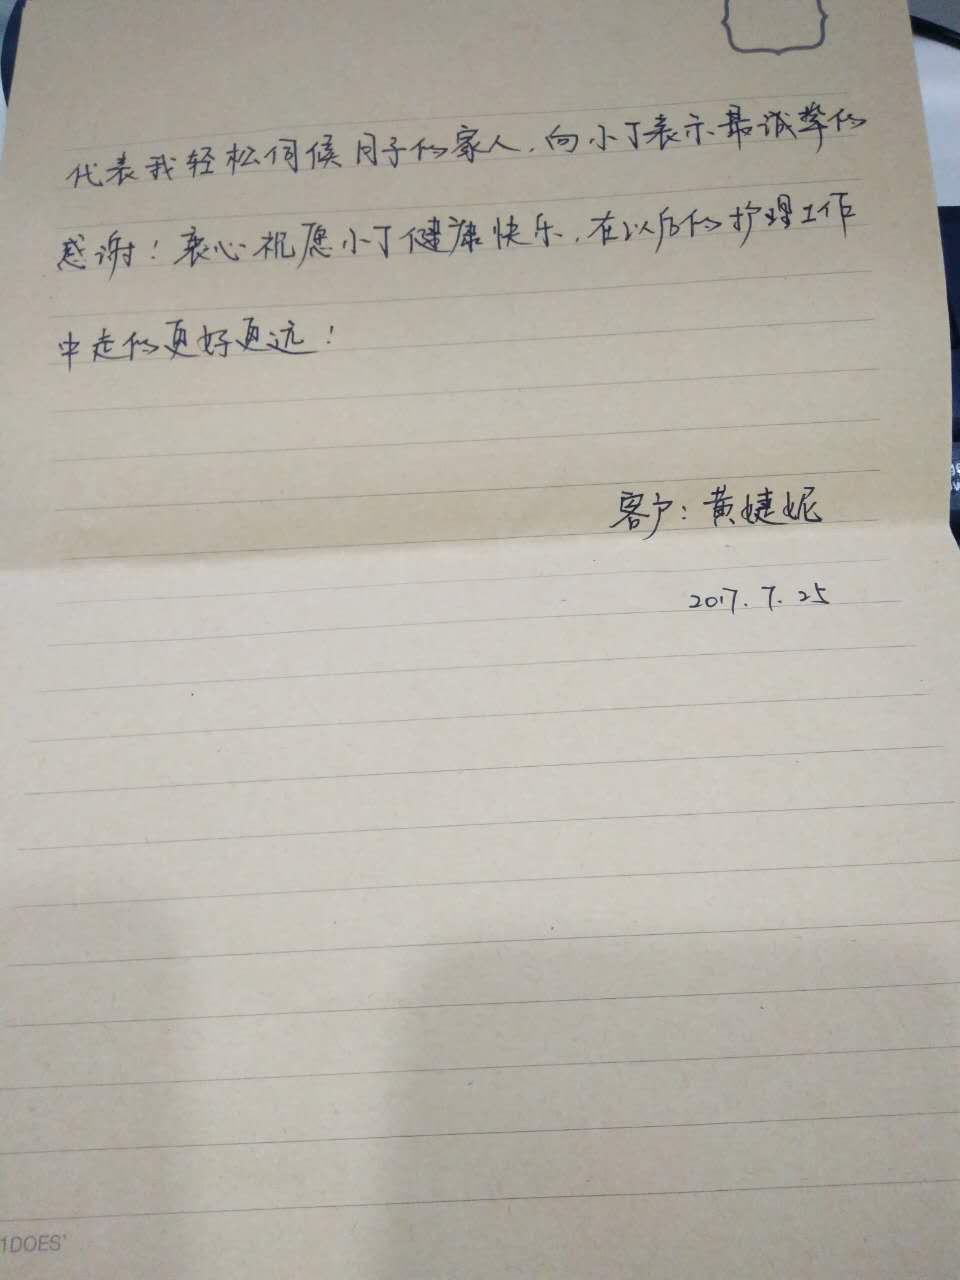 代表我轻松伺候月子的家人，向小丁表示最诚挚的
感谢！衷心祝愿小丁健康快乐，在以后的护理工作
中走的更好更远！
客户：黄婕妮
2017.7.25
1DOES'